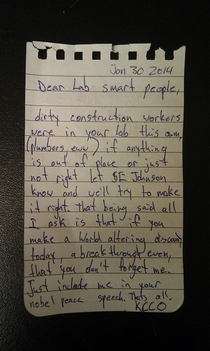 Jan 30 2014
Dear Lab smart people,
dirty construction workers
were in your lab this am,
(plumbers, eww) if anything
is out of place or just
not right let SE Johnson
know and we'll try to make
it right. That being said all
I ask is that if you
make a world altering discovery
today, a breakthrough even,
that you don't forget me..
Just include me in your
nobel peace speech. Thats all.
KCCO